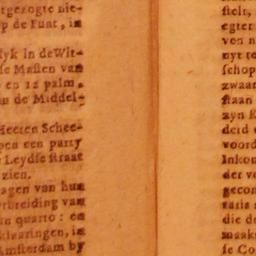 tgezogte nie-
p de Punt, in
lyk in de Wit-
se Masten van
en 12 palm,
an de Middel-
Heeren Schee-
pen een party
Leydse straat
zien.
agen van hun
rbreiding van
in quarto: en
klaaringen, in
Amsterdam by
stelt,
egter
ven n
nyt te
schop
zwaar
staan
zyn R
deid e
voord
Inkom
der ve
gecon
taris
die de
maak
se Co